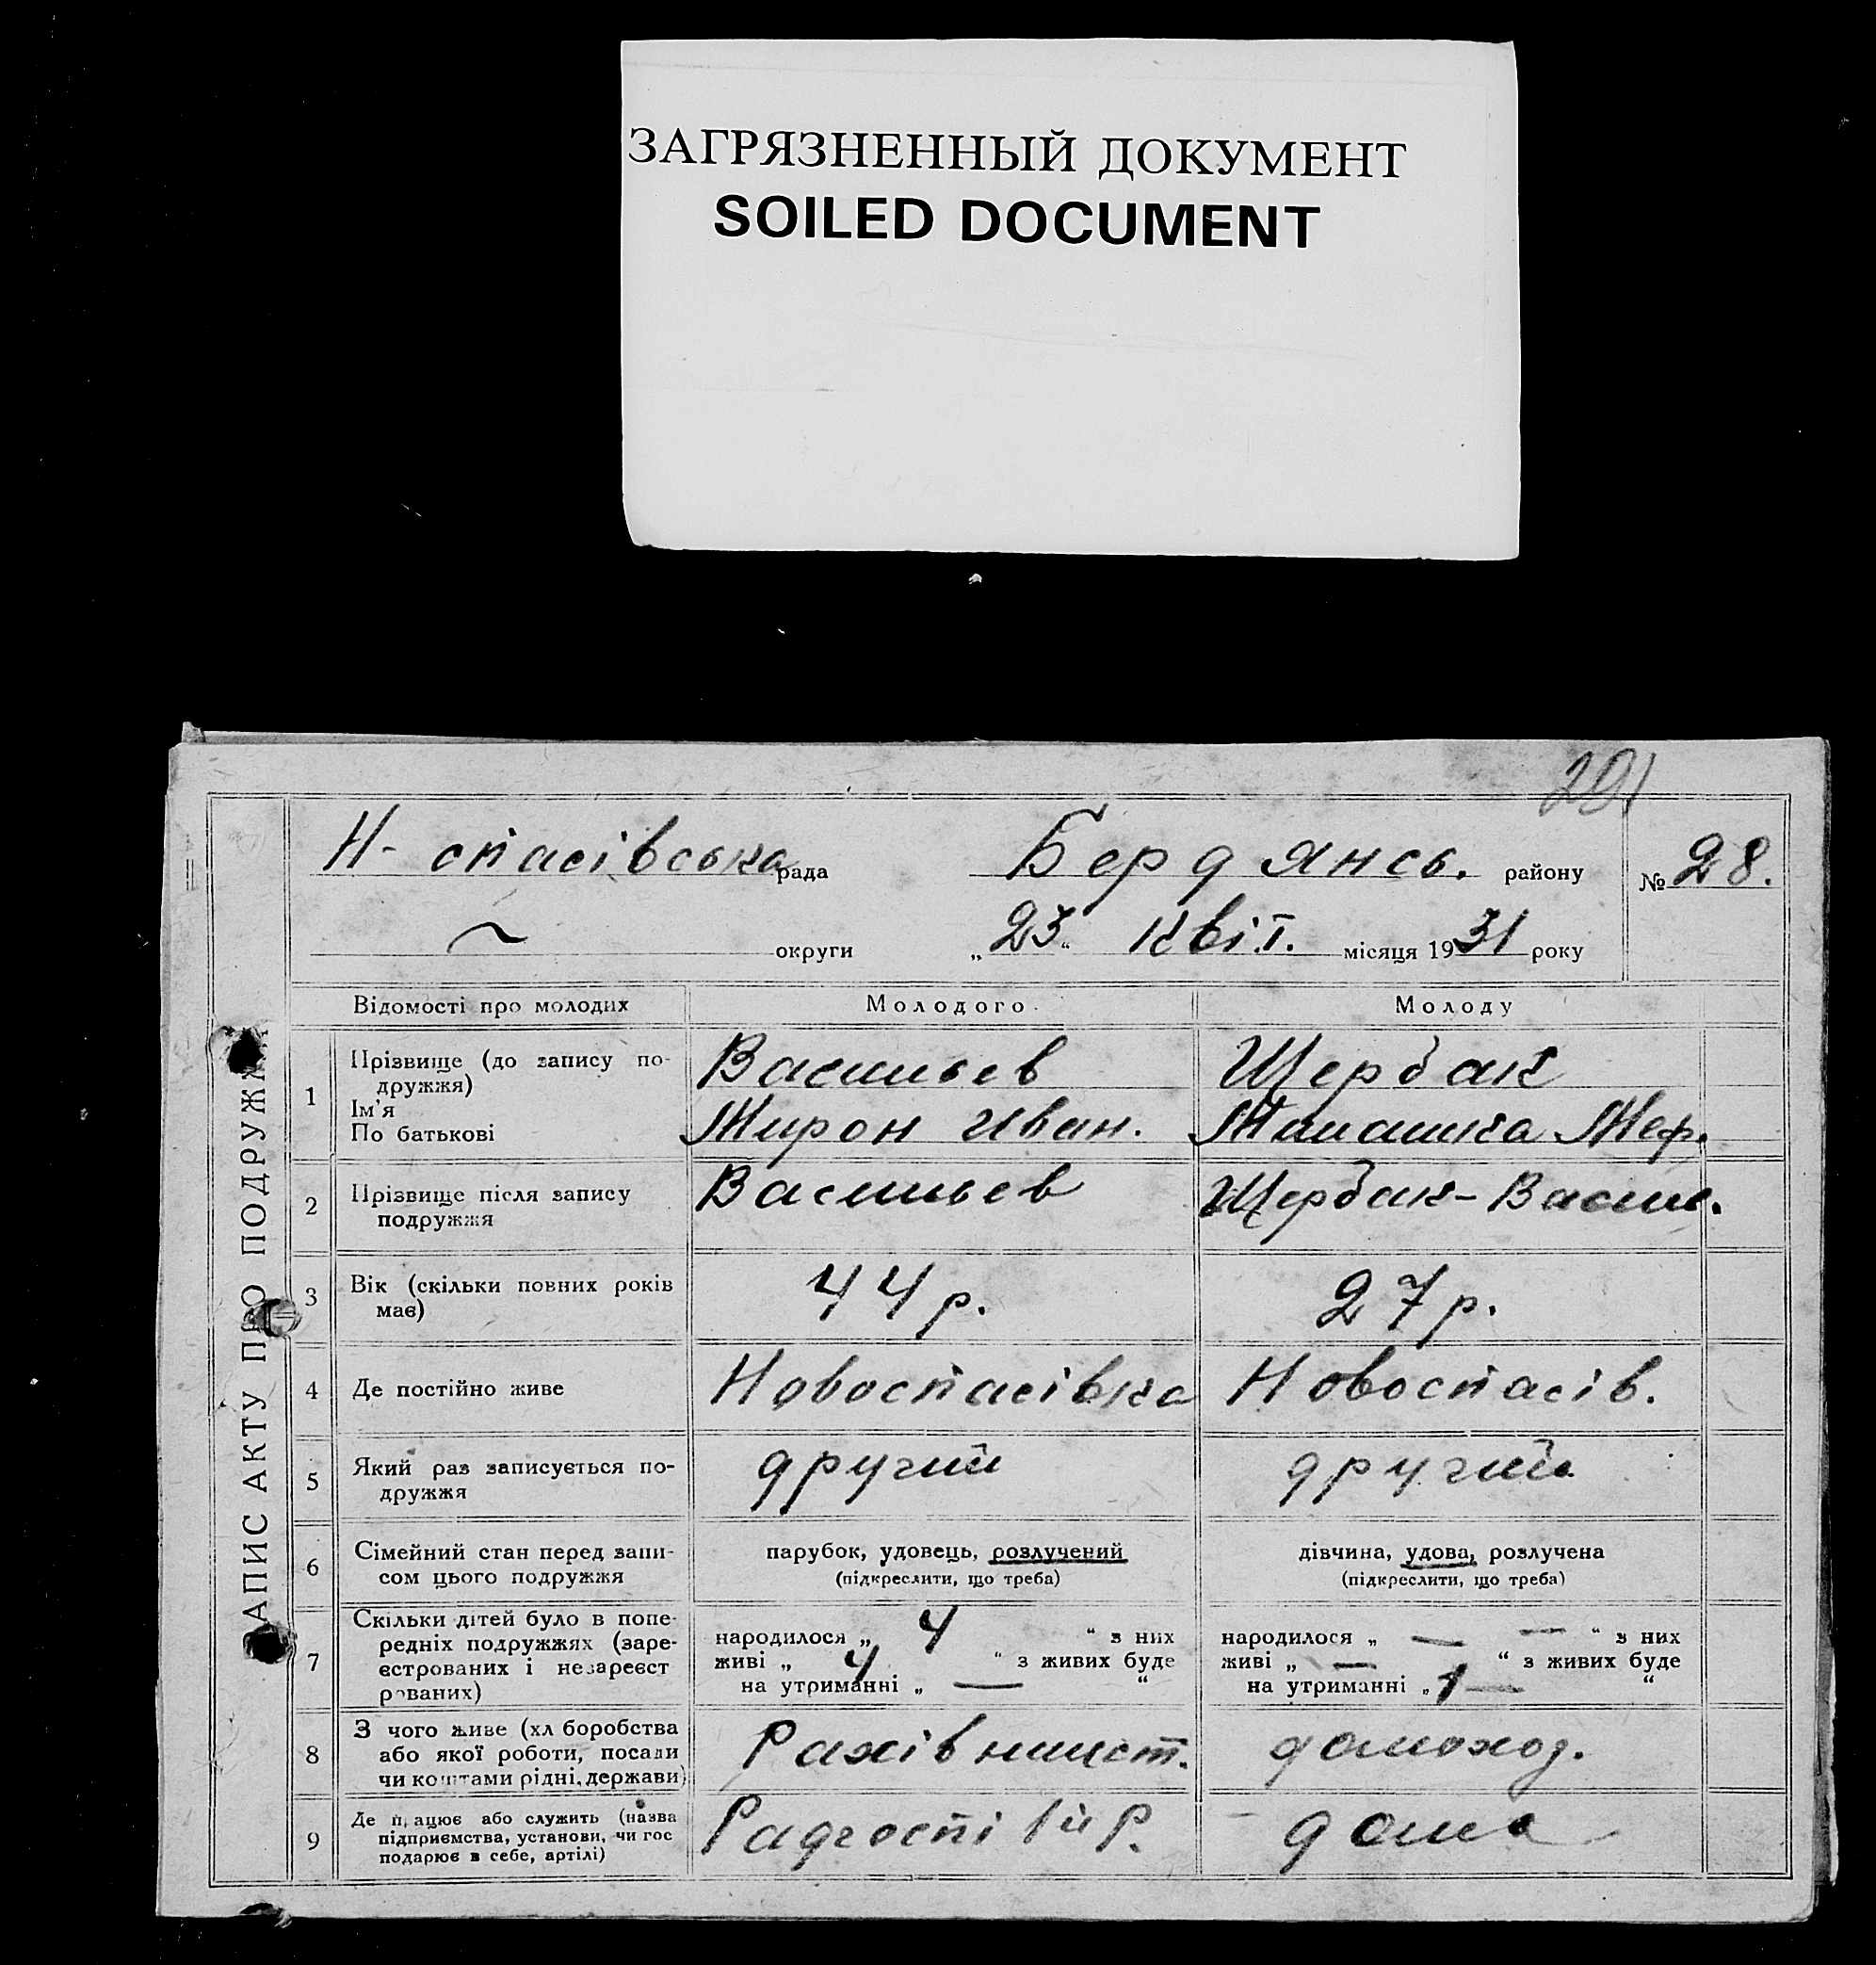 ЗАГРЯЗНЕННЫЙ ДОКУМЕНТ
SOILED DOCUMENT
201
Н- спасівська рада Бердянсь. району № 28.
~ округи „23“ Квіт. місяця 1931 року
АПИС АКТУ ПРО ПОДРУЖЖЯ
Відомості про молодих Молодого Молоду
1 Прізвище (до запису по- Васильев Щербак
дружжя)
Ім'я Мирон Иван. Меф.
По батькові
2 Прізвище після запису Васильев Щербак-Васил.
подружжя
3 Вік (скільки повних років 44 р. 27 р.
має)
4 Де постійно живе Новоспасівка Новоспасів.
5 Який раз записується по- другий другий
дружжя
6 Сімейний стан перед запи- парубок, удовець, розлучений дівчина, удова, розлучена
сом цього подружжя (підкреслити, що треба) (підкреслити, що треба)
7 Скільки дітей було в попе-
редніх подружжях (заре- народилося „ 4 “ з них народилося „ — “ з них
єстрованих і незареєст живі „ 4 “ з живих буде живі „ — “ з живих буде
рованих) на утриманні „ — “ на утриманні „ 1 — “
8 З чого живе (хл боробства Рахівницт. домоход.
або якої роботи, посади
чи коштами рідні, держави)
9 Де працює або служить (назва Радгоспі дома
підприємства, установи, чи гос
подарює в себе, артілі)